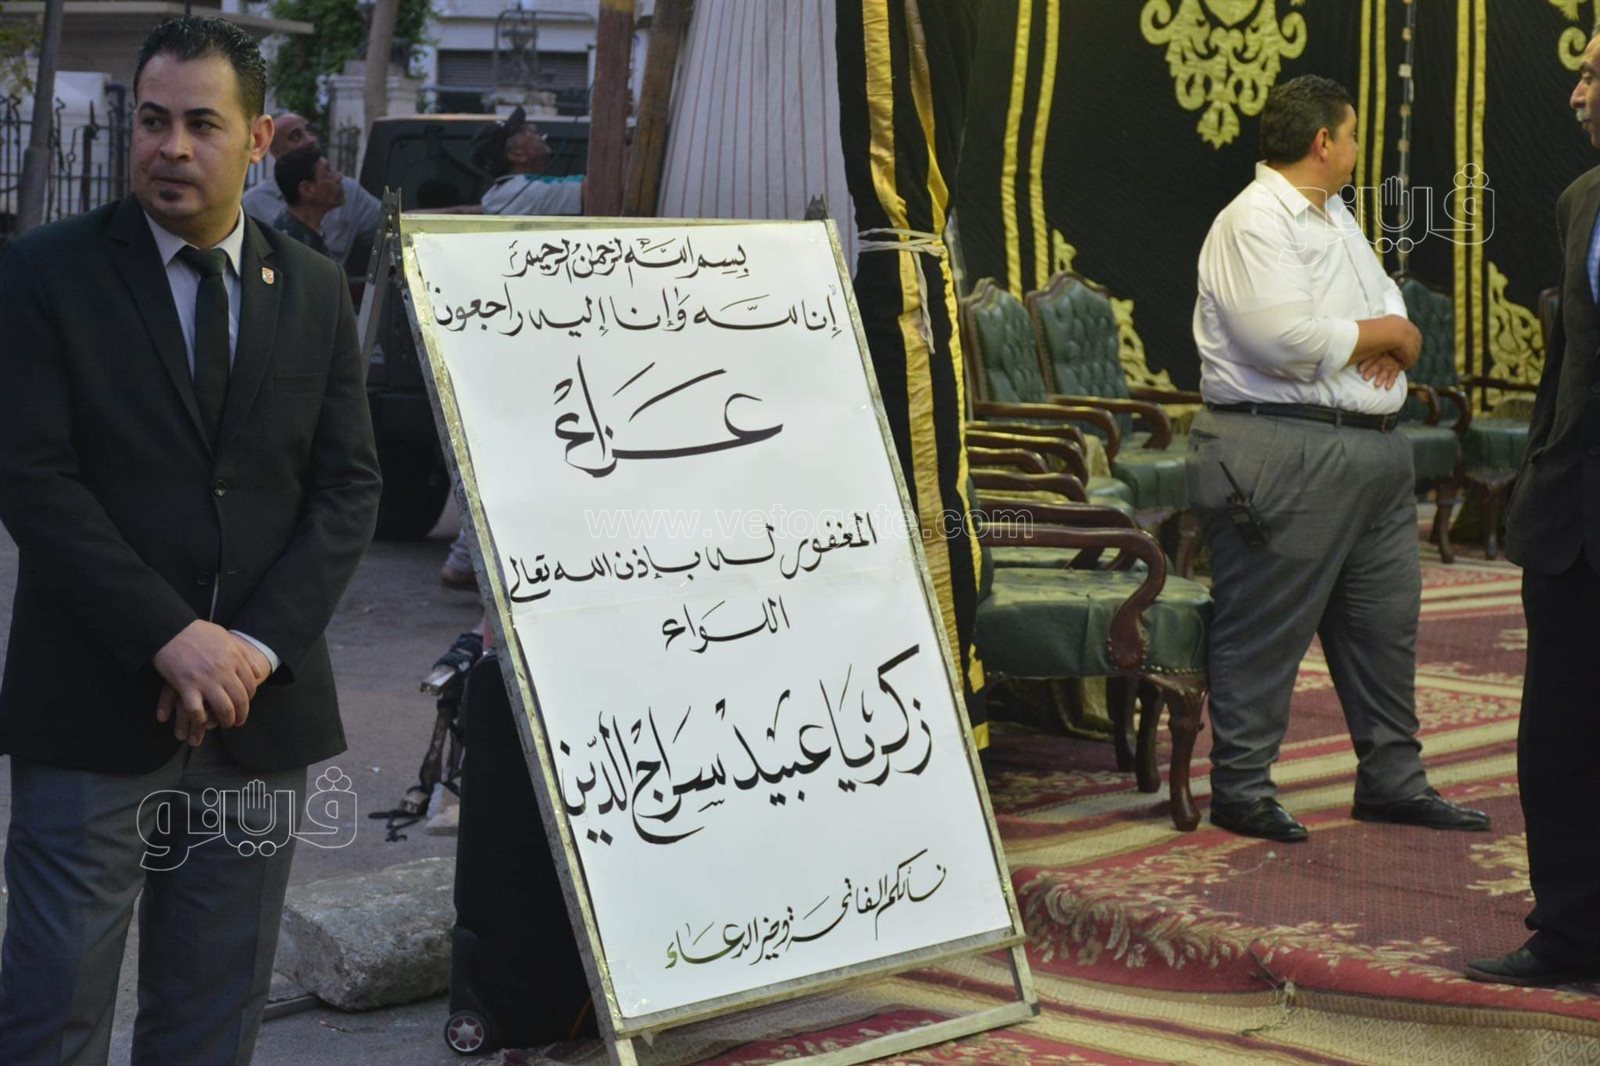 بسم الله الرحمن الرحيم
"إنا لله وإنا إليه راجعون"
عزاء
المغفور له بإذن الله تعالى
اللواء
زكريا عبيد سراج الدين
نسألكم الفاتحة وخير الدعاء
فيتو
www.vetogate.com
فيتو